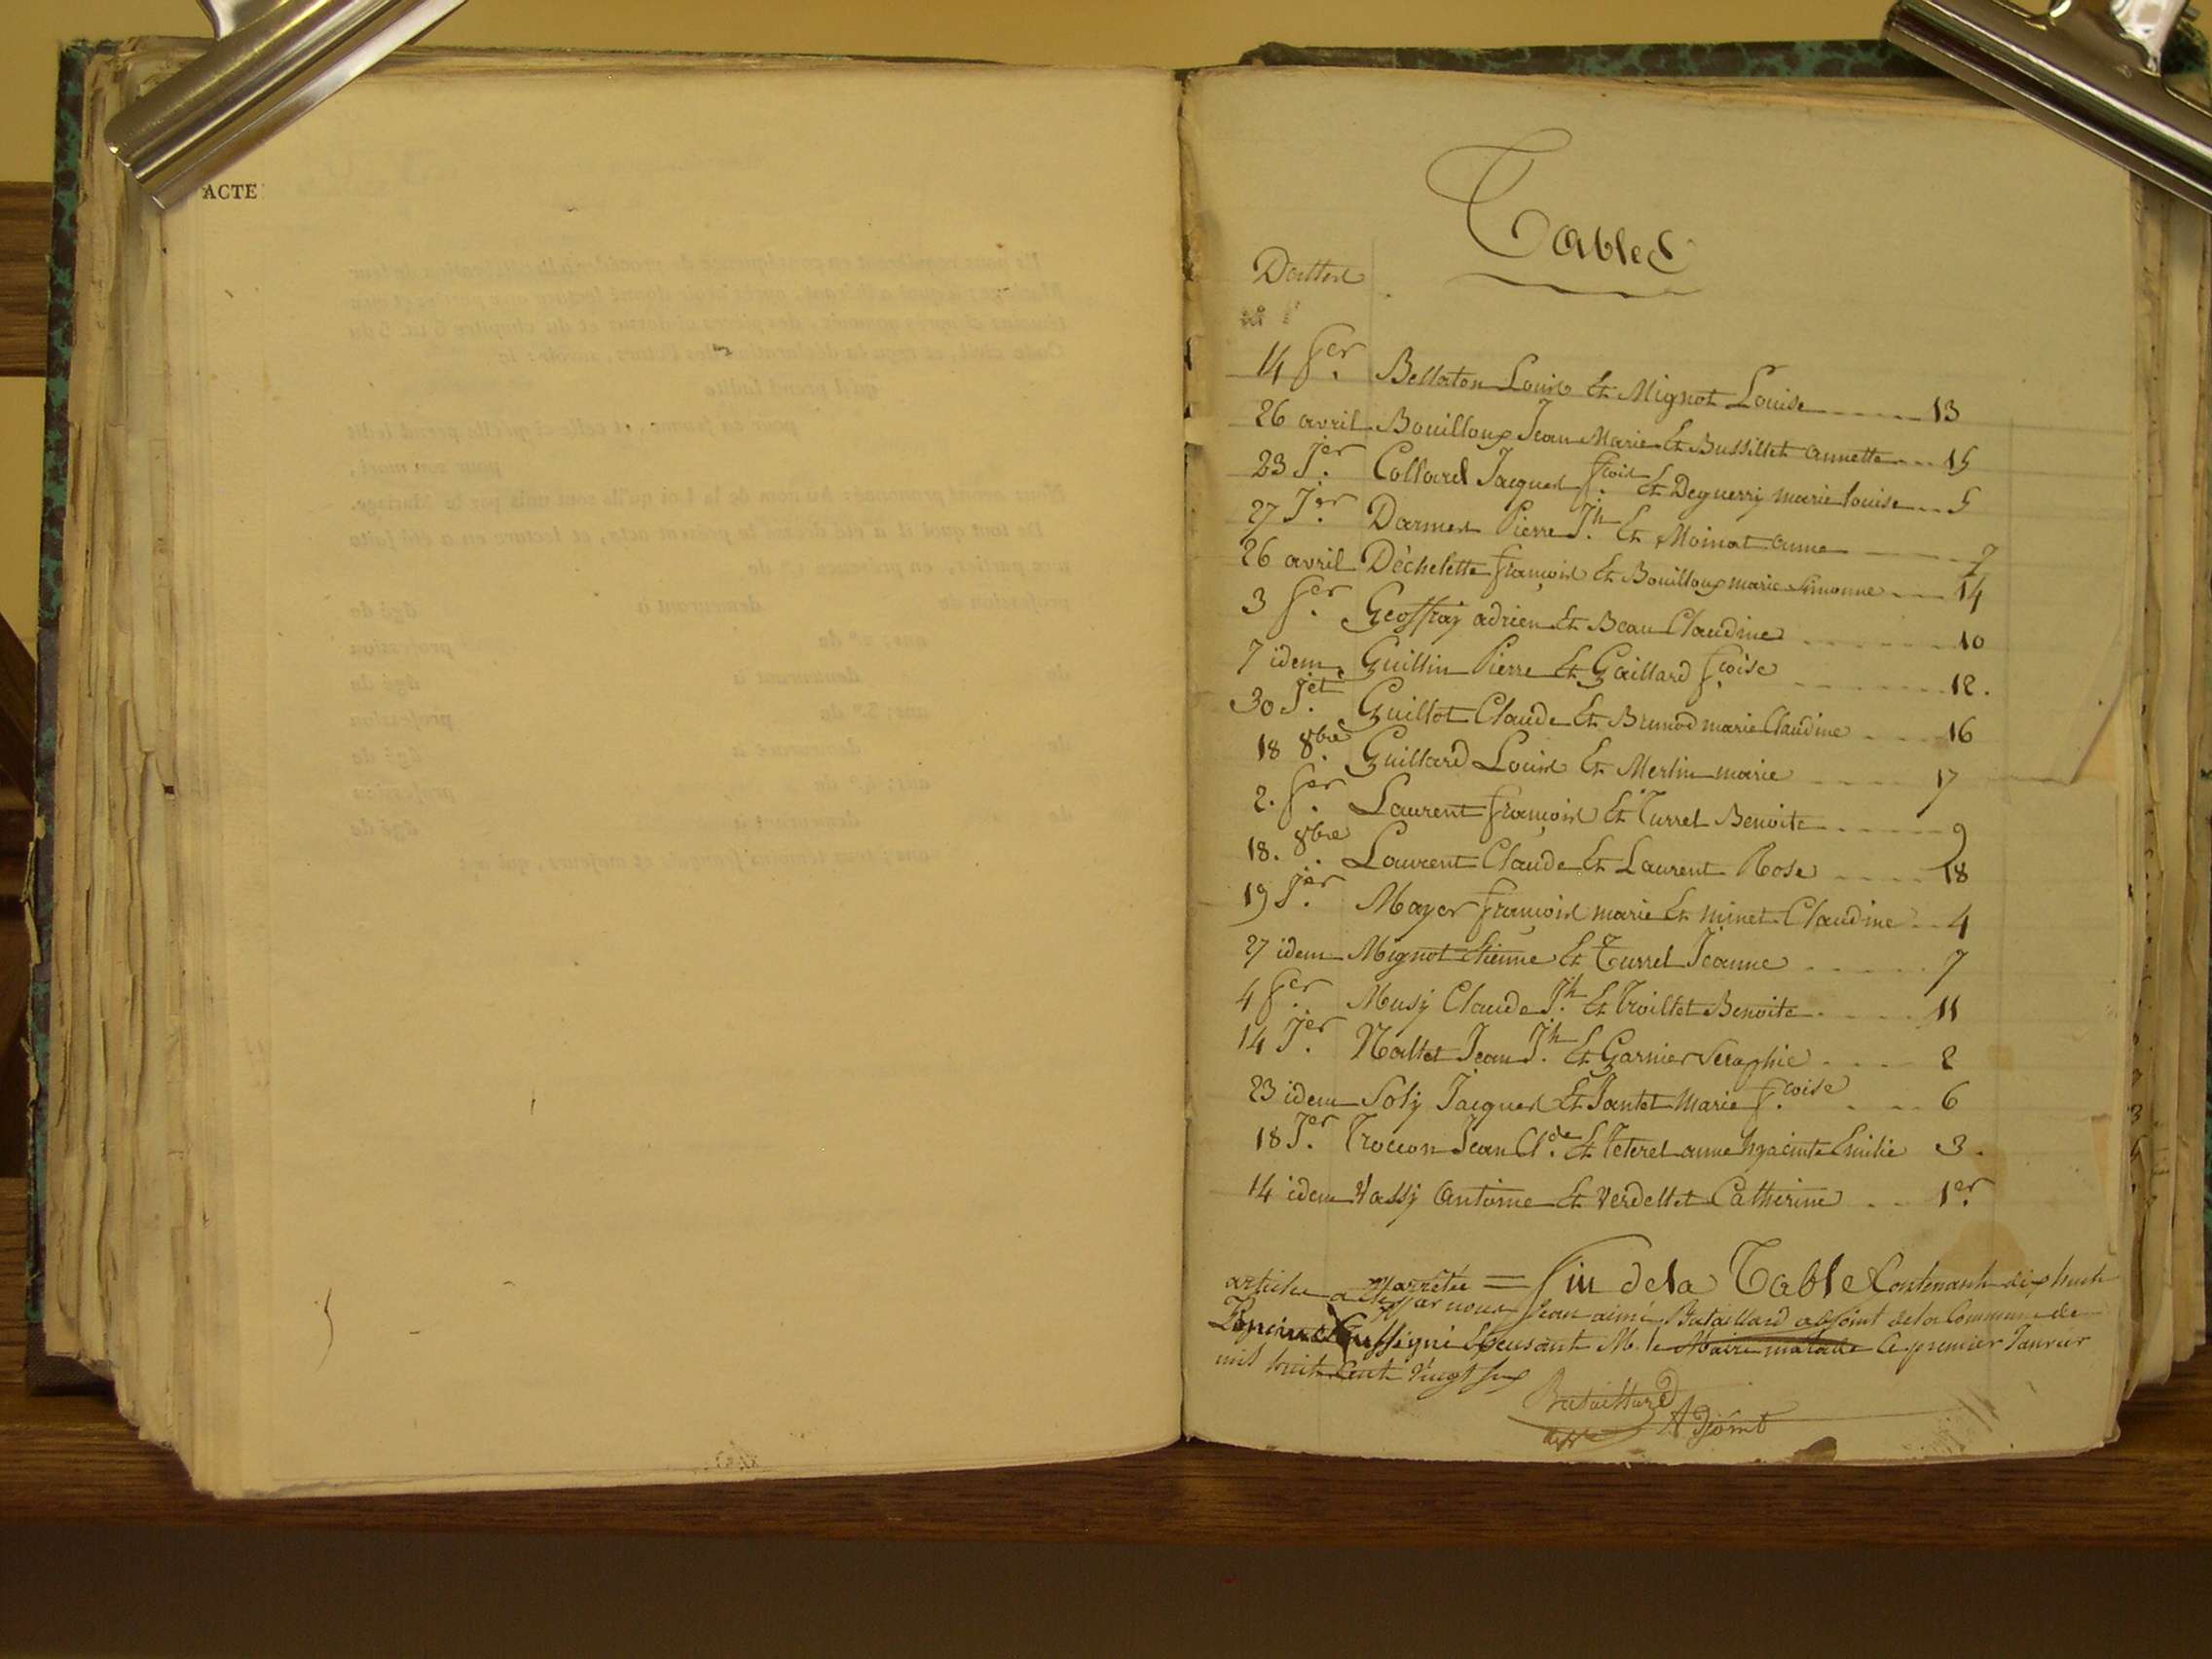 ACTE
Tables
Dattes
14 fer. Bellaton Louis Et Mignot Louise 13
26 avril Bouilloux Jean Marie Et Bussillet annette 15
23 Jer. Collard Jacques fcois. Et Deguerry marie louise 5
27 Jer. Darmes Pierre Jh. Et Moinat anne
26 avril Déchelette françois Et Bouilloux marie Simonne 14
3 fer. Geoffray adrien Et Beau Claudine 10
7 idem Guillin Pierre Et Gaillard fcoise 12.
30 Jet. Guillot Claude Et Brunod marie Claudine 16
18 8bre. Guillard Louis Et Merlin marie 17
2. fer. Laurent françois Et Turrel Benoite 9
18. 8bre. Laurent Claude Et Laurent Rose 18
19 Jer. Mayer françois marie Et minet Claudine 4
27 idem Mignot Etienne Et Turrel Jeanne 7
4 fer. Musy Claude Jh. Et Troillet Benoite 11
14 Jer. Nallet Jean Jh. Et Garnier Seraphie 2
23 idem Soly Jacques Et Jantet Marie fcoise. 6
18 Jer. Trocon Jean Cl.de Et Teterel anne hyacinte Emilie 3.
14 idem Vassy Antoine Et Verdellet Catherine 1er.
fin de la Table Contenant dix huit
articles arrêtée par nous Jean aimé Bataillard adjoint de la Commune de
Soussigné Epensant M. le Maire malade Ce premier Janvier
mil huit Cent Vingt six
Bataillard
Adjoint